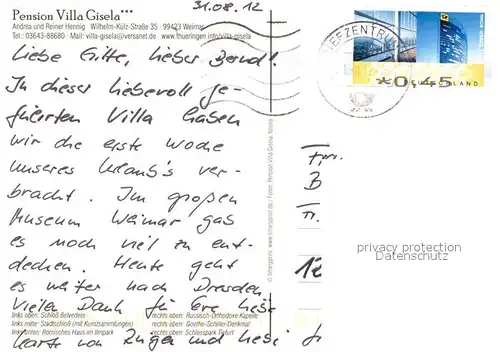 Pension Villa Gisela***
Andrea und Reiner Hennig Wilhelm-Külz-Straße 35 · 99423 Weimar
Tel.: 03643-88680 · Mail: villa-gisela@versanet.de · www.thueringen.info/villa-gisela
31.08.12
Liebe Gitte, lieber Bernd!
In dieser liebevoll ge-
führten Villa haben
wir die erste Woche
unseres Urlaub's ver-
bracht. Im großen
Museum Weimar gab
es noch viel zu ent-
decken. Heute geht
es weiter nach Dresden
Vielen Dank für Eure liebe
Karte von Rügen und
links oben: Schloß Belvedere
links mitte: Stadtschloß (mit Kunstsammlungen)
links unten: Römisches Haus im Ilmpark
rechts oben: Russisch-Orthodoxe Kapelle
rechts mitte: Goethe-Schiller-Denkmal
rechts unten: Schlosspark Tiefurt
BRIEFZENTRUM
0,45
DEUTSCHLAND
Fam.
B
12
privacy protection
Daniel Wimmer